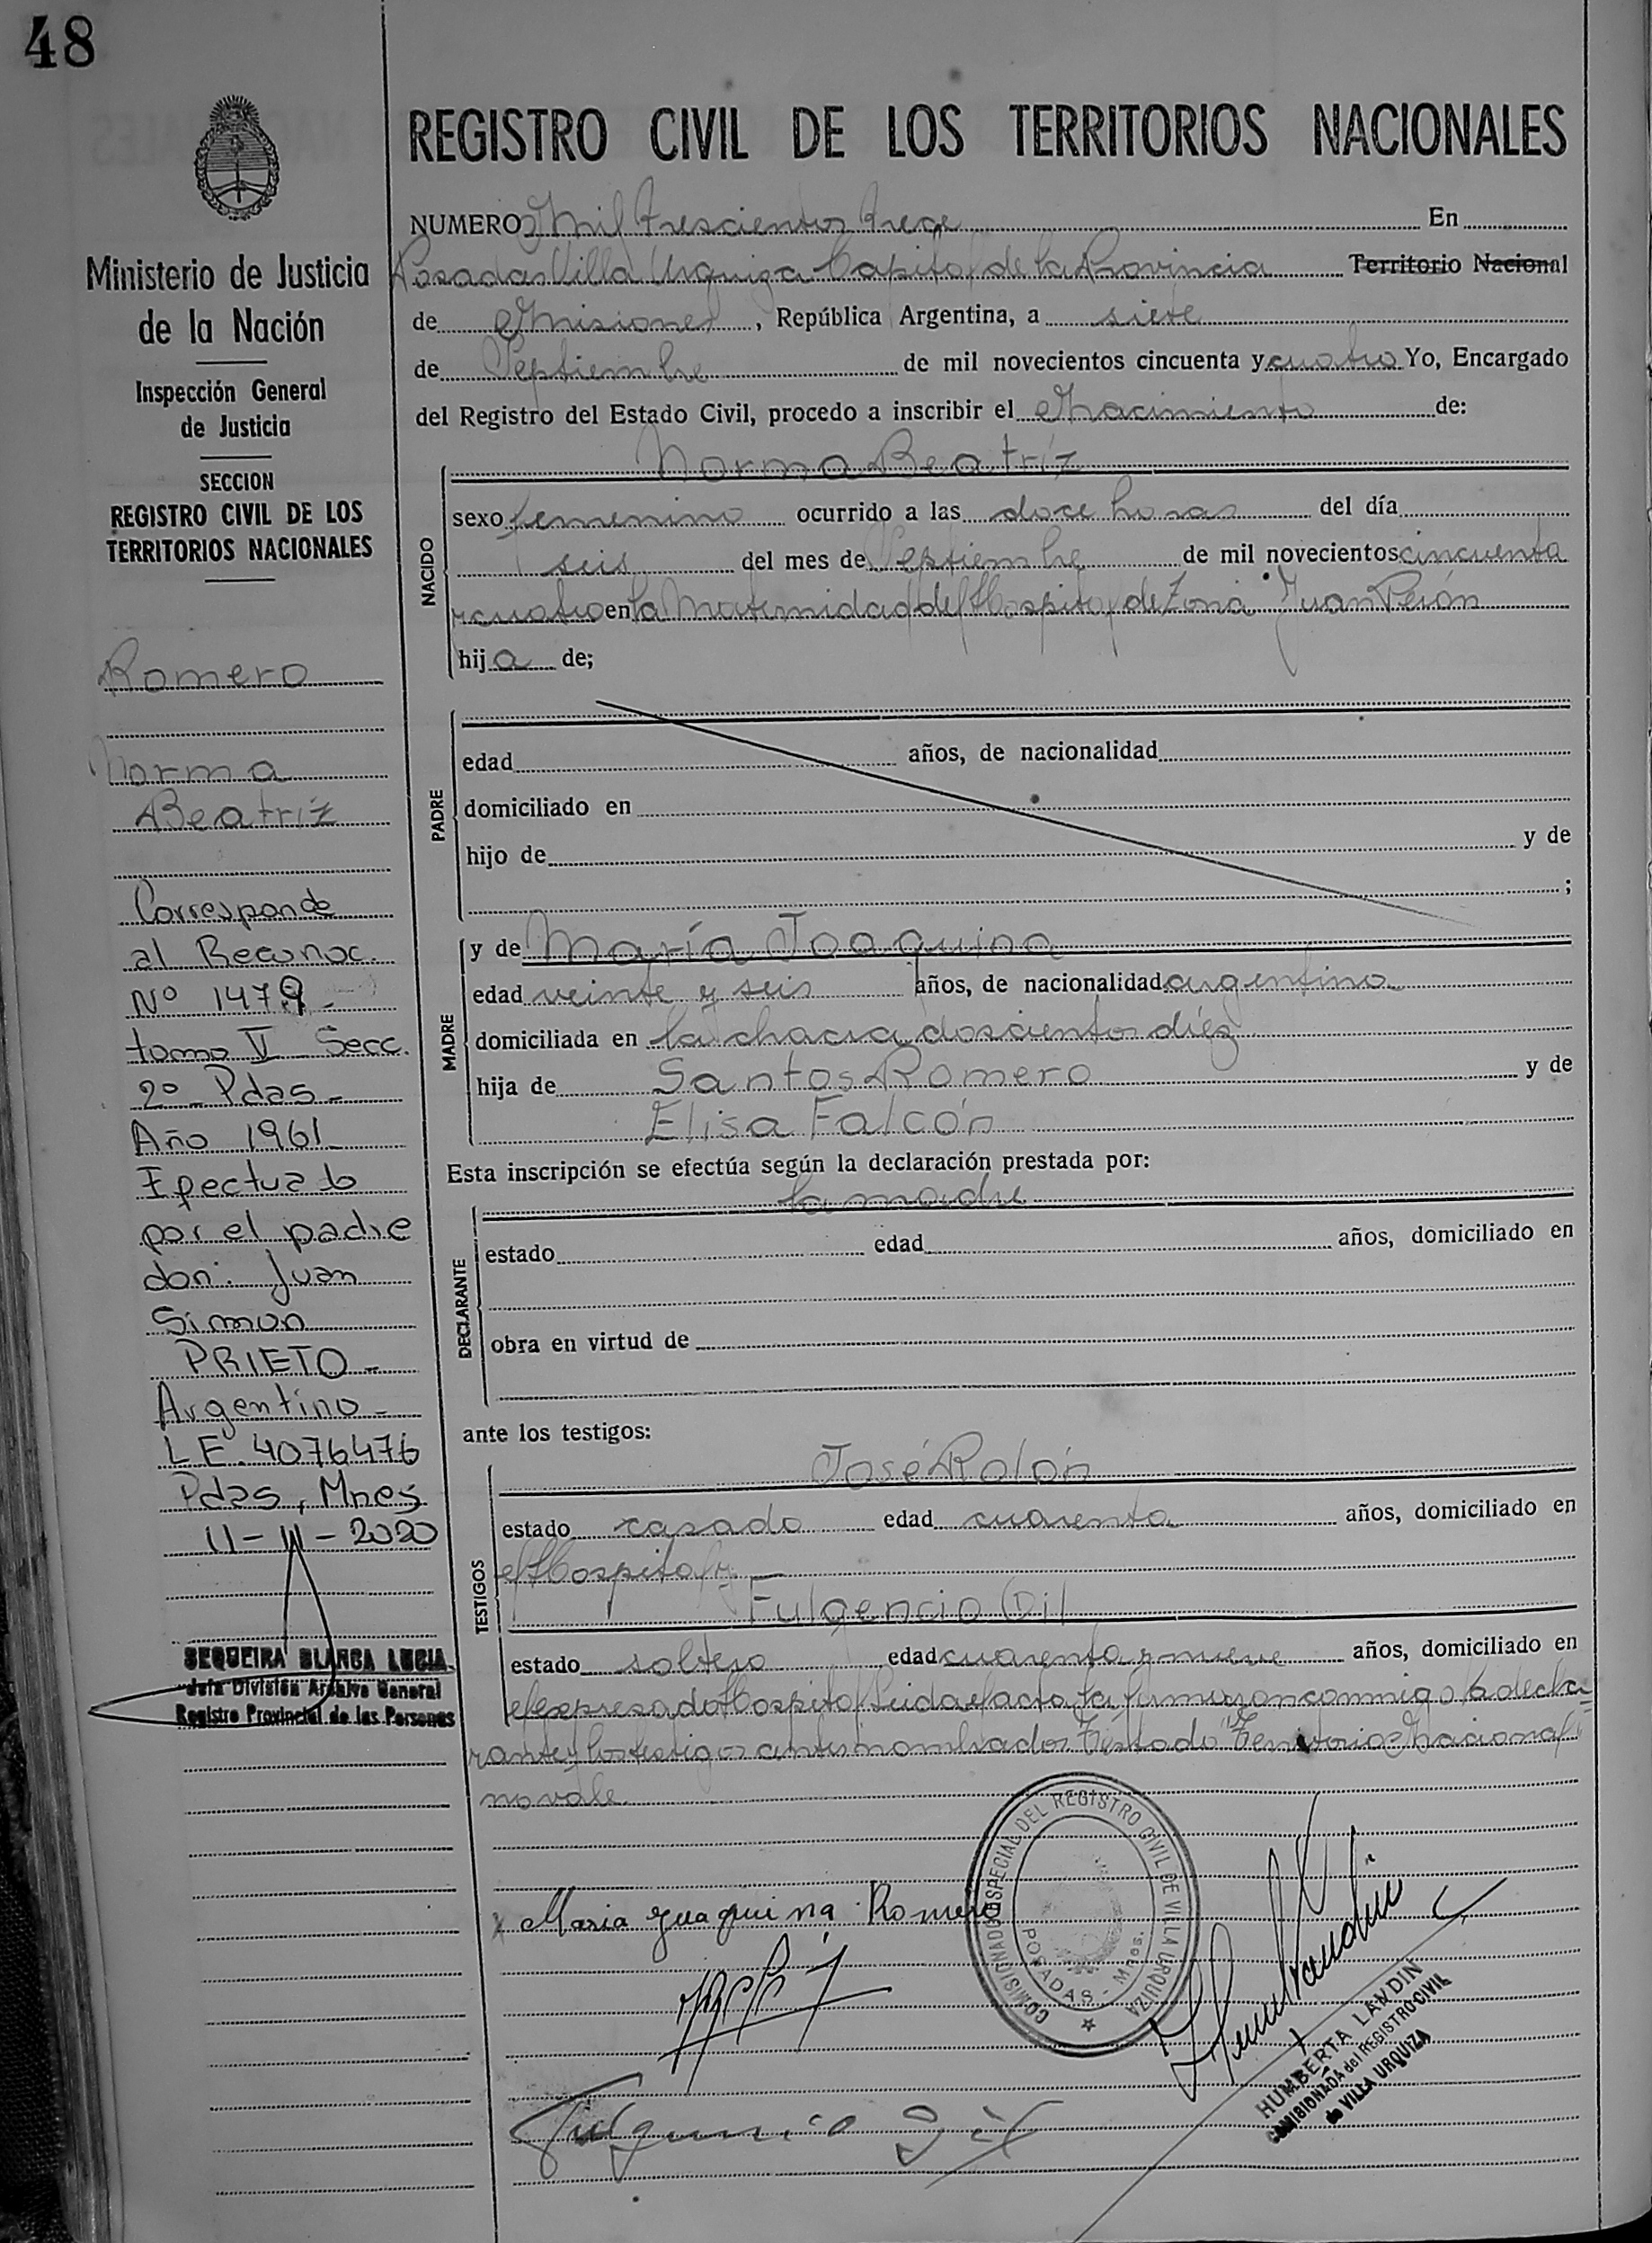 48
REGISTRO CIVIL DE LOS TERRITORIOS NACIONALES
Ministerio de Justicia
de la Nación
Inspección General
de Justicia
SECCION
REGISTRO CIVIL DE LOS
TERRITORIOS NACIONALES
Romero
Norma
Beatríz
Corresponde
al Reconoc.
Nº 1479-
tomo V Secc.
2º - Pdas -
Año 1961
Efectuado
por el padre
don: Juan
Simon
PRIETO -
Argentino -
L E. 4076476
Pdas, Mnes
11-III-2020
SEQUEIRA BLANCA LUCIA
Jefa División Archivo General
Registro Provincial de las Personas
NUMERO Mil trescientos trece En
Posadas Villa Urquiza Capital de la Provincia Territorio Nacional
de Misiones, República Argentina, a siete
de Septiembre de mil novecientos cincuenta y cuatro Yo, Encargado
del Registro del Estado Civil, procedo a inscribir el Nacimiento de:
NACIDO
Norma Beatríz
sexo femenino ocurrido a las doce horas del día
seis del mes de Septiembre de mil novecientos cincuenta
y cuatro en la Maternidad del Hospital de Zona Juan Perón
hija de;
PADRE
edad años, de nacionalidad
domiciliado en
hijo de y de
;
MADRE
y de María Joaquina
edad veinte y seis años, de nacionalidad argentina
domiciliada en la chacra doscientos diéz
hija de Santos Romero y de
Elisa Falcón
Esta inscripción se efectúa según la declaración prestada por:
DECLARANTE
la madre
estado edad años, domiciliado en
obra en virtud de
ante los testigos:
TESTIGOS
José Rolón
estado casado edad cuarenta años, domiciliado en
el Hospital y
Fulgencio Gil
estado soltero edad cuarenta y nueve años, domiciliado en
el expresado Hospital Leida el acta la firmaron conmigo la decla
rante y los testigos antes nombrados Testado "Territorio Nacional"
no vale.
Maria Juaquina Romero
COMISIONADO ESPECIAL DEL REGISTRO CIVIL DE VILLA URQUIZA
POSADAS - Mnes.
HUMBERTA LANDIN
COMISIONADA del REGISTRO CIVIL
de VILLA URQUIZA
Fulgencio Gil